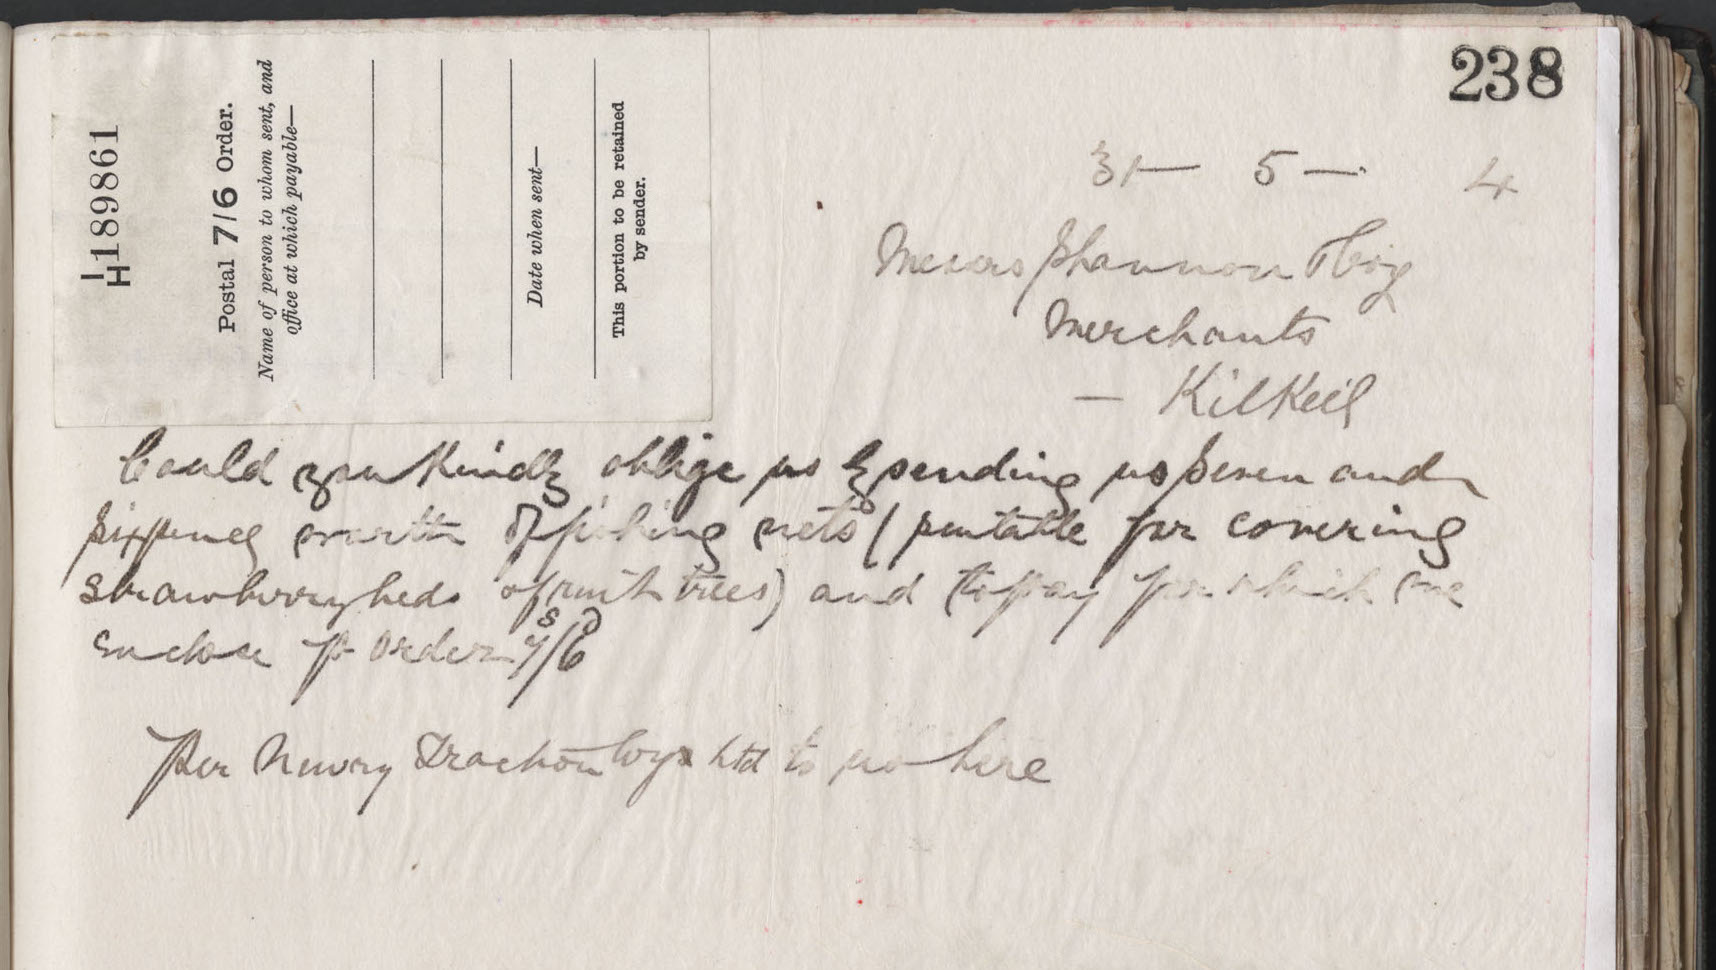 238
1/H 189861
Postal 7/6 Order.
Name of person to whom sent, and
office at which payable—
Date when sent—
This portion to be retained
by sender.
31— 5— 4
Messrs Shannon & Coy
Merchants
— Kilkeel
Could you Kindly oblige us by sending us seven and
sixpence worth of fishing nets (suitable for covering
strawberry beds & fruit trees) and to pay for which we
enclose p order 7s/6d
Per Newry Traction Coy Ltd to us here